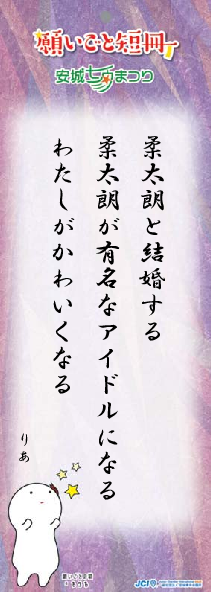 願いごと短冊
安城七夕まつり
柔太朗と結婚する
柔太朗が有名なアイドルになる
わたしがかわいくなる
りあ
JCI